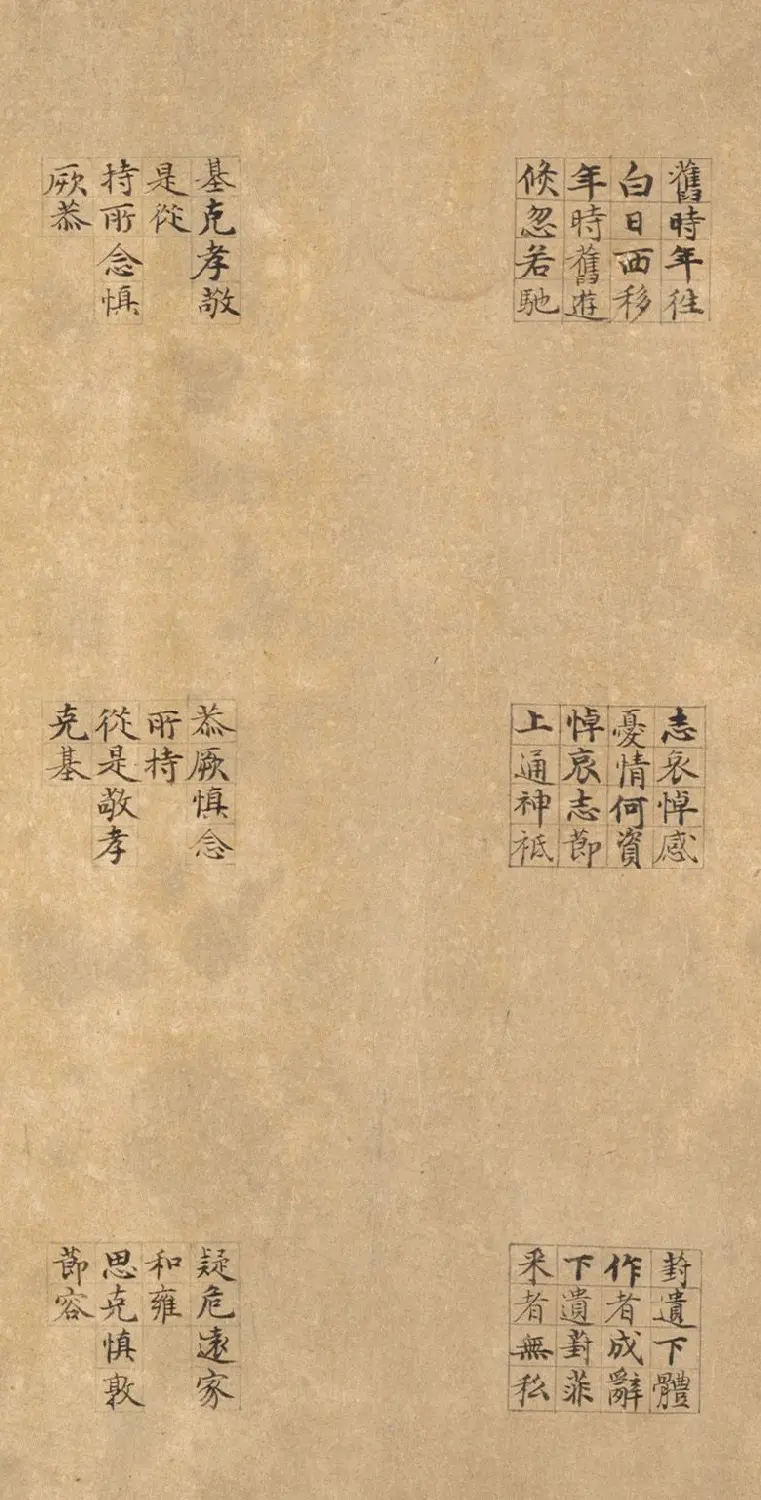 舊時年往
白日西移
年時舊遊
倏忽若馳
基克孝敬
是從
持所念慎
厥恭
志哀悼感
憂情何資
悼哀志節
上通神祗
恭厥慎念
所持
從是敬孝
克基
葑遺下體
作者成辭
下遺葑菲
采者無私
疑危遠家
和雍
思克慎敦
節容